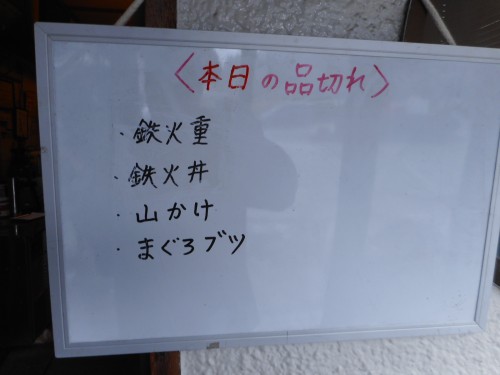 〈本日の品切れ〉
・鉄火重
・鉄火丼
・山かけ
・まぐろブツ